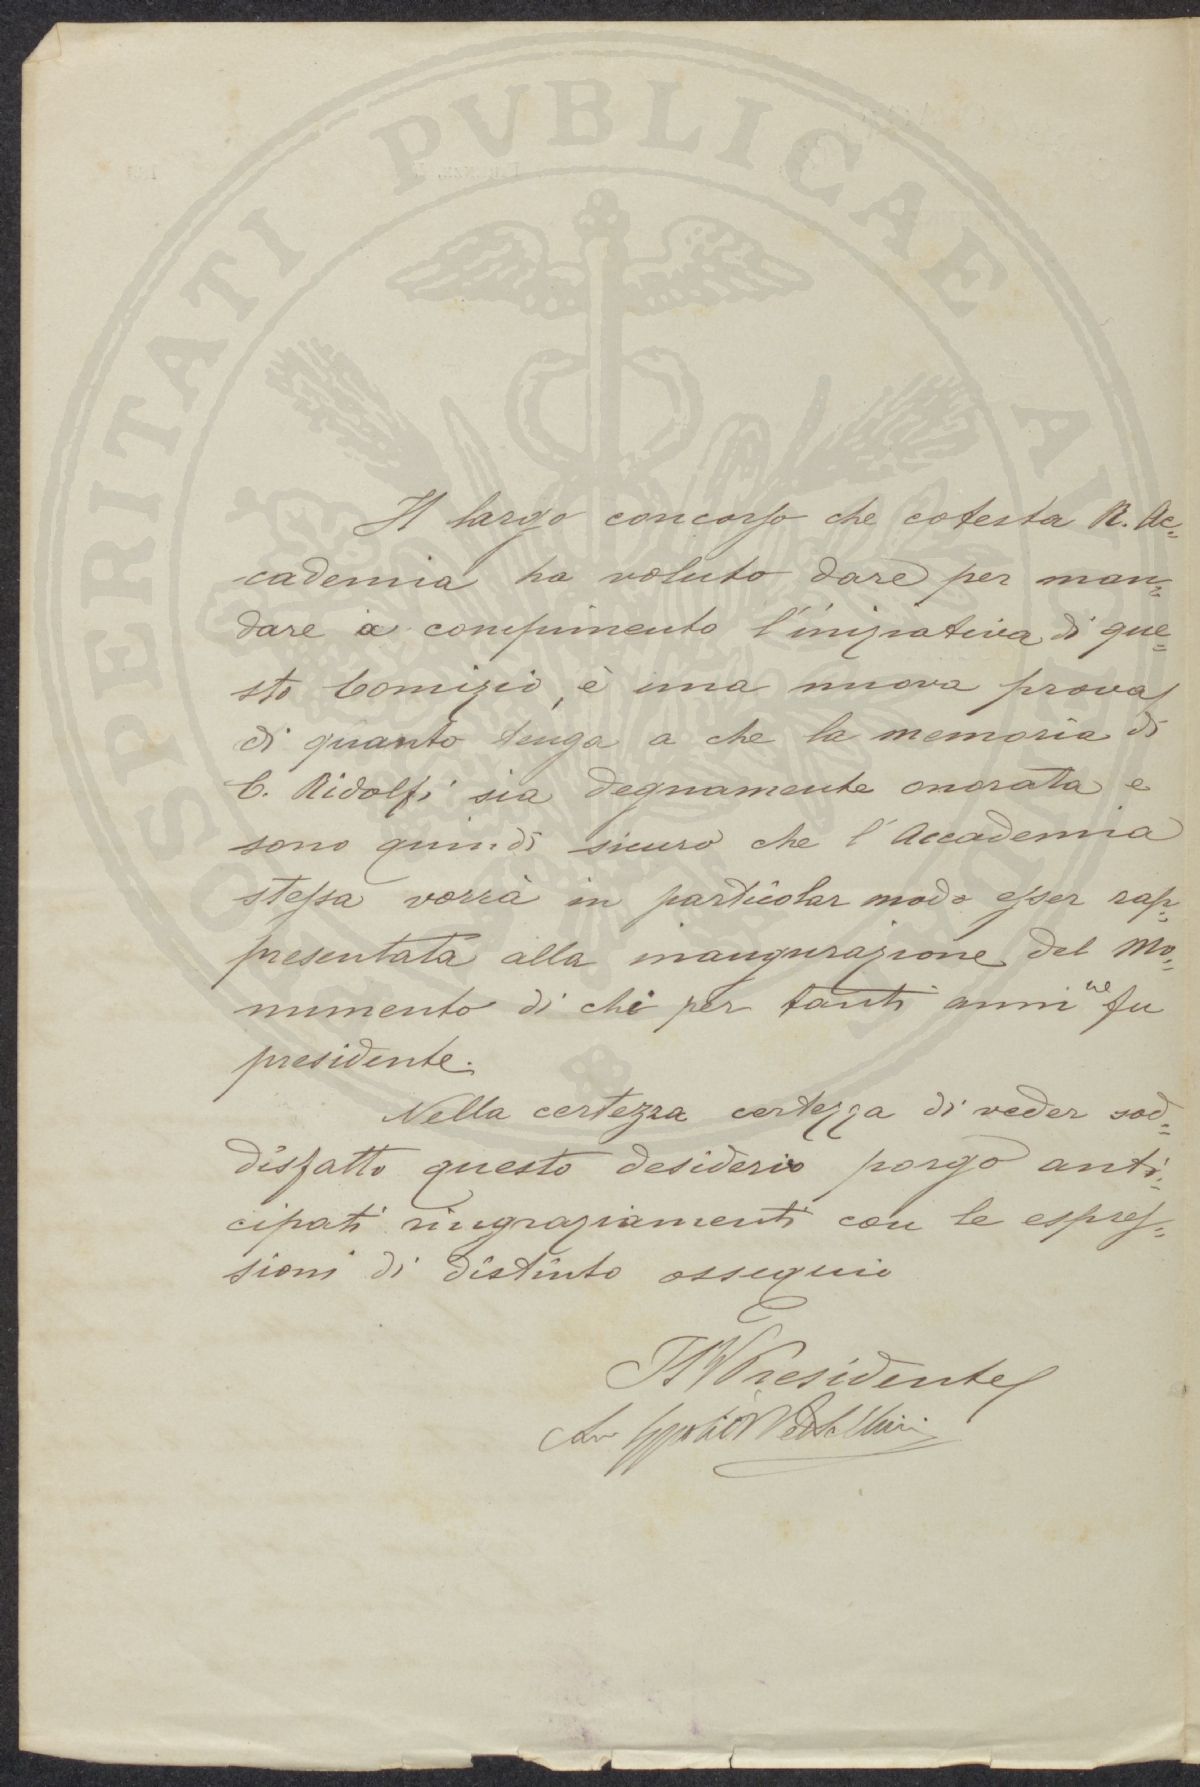 PROSPERITATI PVBLICAE AVGENDAE
Il largo concorso che cotesta R. Ac=
cademia ha voluto dare per man=
dare a compimento l'iniziativa di que=
sto Comizio, è una nuova prova
di quanto tenga a che la memoria di
C. Ridolfi sia degnamente onorata e
sono quindi sicuro che l'Accademia
stessa vorrà in particolar modo esser rap=
presentata alla inaugurazione del Mo=
numento di chi per tanti anni ne fu
presidente.
Nella certezza certezza di veder sod=
disfatto questo desiderio porgo anti=
cipati ringraziamenti con le espres=
sioni di distinto ossequio
Il Presidente